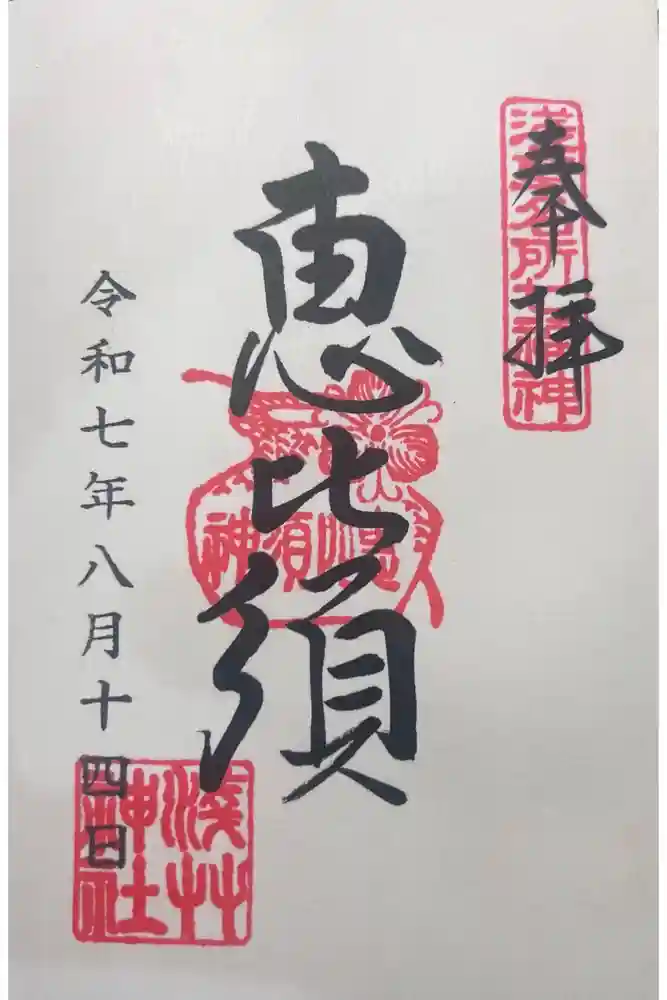 奉拝
浅草名所七福神
恵比須
恵比須神
令和七年八月十四日
浅草神社